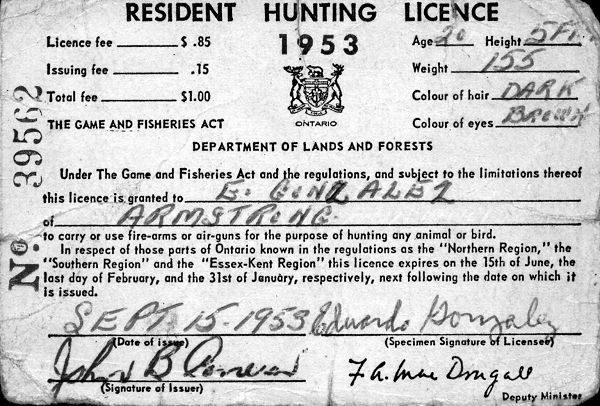 RESIDENT HUNTING LICENCE
1953
Licence fee $ .85
Issuing fee .15
Total fee $1.00
THE GAME AND FISHERIES ACT
ONTARIO
Age 20 Height 5FT
Weight 155
Colour of hair DARK
Colour of eyes BROWN
No. 39562
DEPARTMENT OF LANDS AND FORESTS
Under The Game and Fisheries Act and the regulations, and subject to the limitations thereof
this licence is granted to E. GONZALEZ
of ARMSTRONG.
to carry or use fire-arms or air-guns for the purpose of hunting any animal or bird.
In respect of those parts of Ontario known in the regulations as the "Northern Region," the
"Southern Region" and the "Essex-Kent Region" this licence expires on the 15th of June, the
last day of February, and the 31st of January, respectively, next following the date on which it
is issued.
SEPT 15-1953 Eduardo Gonzalez
(Date of issue) (Specimen Signature of Licensee)
John B F.A. Mac Dougall
(Signature of Issuer) Deputy Minister